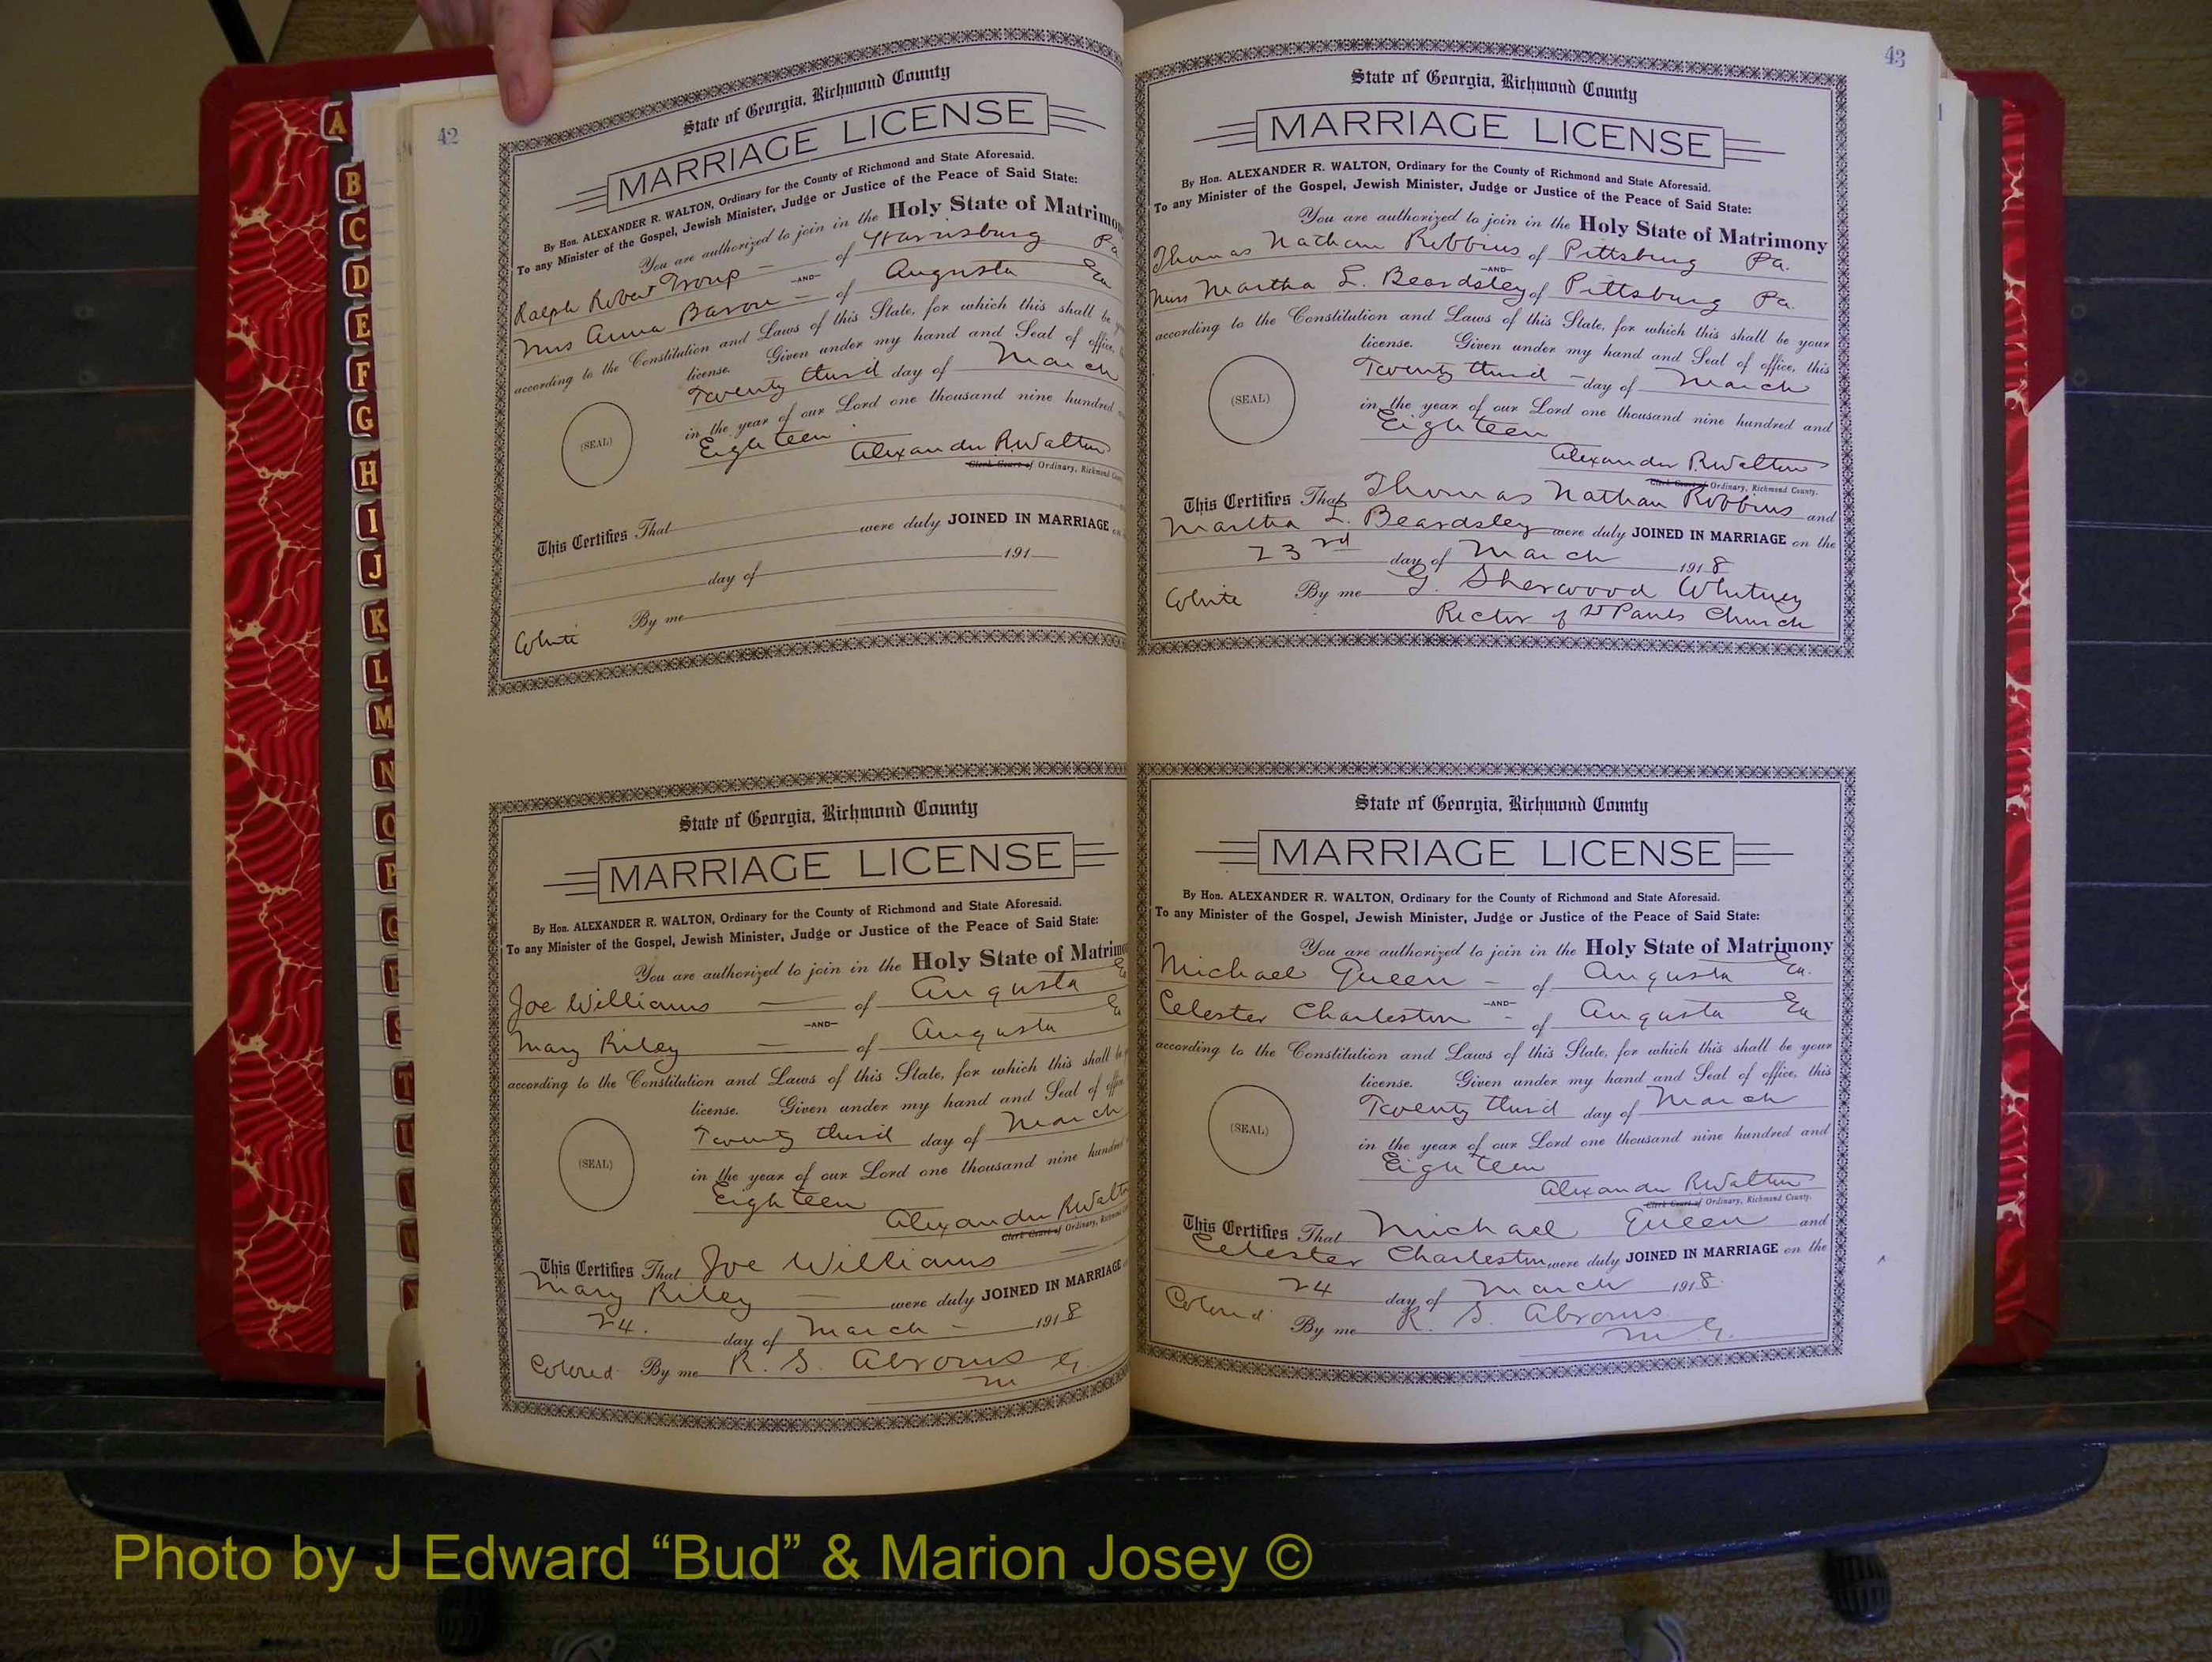 A
B
C
D
E
F
G
H
I
J
K
L
M
N
O
P
Q
R
S
T
U
V
W
42
State of Georgia, Richmond County
MARRIAGE LICENSE
By Hon. ALEXANDER R. WALTON, Ordinary for the County of Richmond and State Aforesaid.
To any Minister of the Gospel, Jewish Minister, Judge or Justice of the Peace of Said State:
You are authorized to join in the Holy State of Matrimon
Ralph Robert Troup of Harrisburg Pa
-AND-
Anna Baron of Augusta Ga
according to the Constitution and Laws of this State, for which this shall be
license. Given under my hand and Seal of office,
(SEAL)
Twenty third day of March
in the year of our Lord one thousand nine hundred
Eighteen
Alexander R. Walton
Clerk Court of Ordinary, Richmond County
This Certifies That
were duly JOINED IN MARRIAGE on
day of 191
By me
White
State of Georgia, Richmond County
MARRIAGE LICENSE
By Hon. ALEXANDER R. WALTON, Ordinary for the County of Richmond and State Aforesaid.
To any Minister of the Gospel, Jewish Minister, Judge or Justice of the Peace of Said State:
You are authorized to join in the Holy State of Matrimo
Joe Williams of Augusta Ga
-AND-
Mary Riley of Augusta Ga
according to the Constitution and Laws of this State, for which this shall be
license. Given under my hand and Seal of office
(SEAL)
Twenty third day of March
in the year of our Lord one thousand nine hundred
Eighteen
Alexander R. Walton
Clerk Court of Ordinary, Richmond
This Certifies That Joe Williams
Mary Riley were duly JOINED IN MARRIAGE
24. day of March 1918
Colored By me R. S. Abrams
M G.
43
State of Georgia, Richmond County
MARRIAGE LICENSE
By Hon. ALEXANDER R. WALTON, Ordinary for the County of Richmond and State Aforesaid.
To any Minister of the Gospel, Jewish Minister, Judge or Justice of the Peace of Said State:
You are authorized to join in the Holy State of Matrimony
Thomas Nathan Robbins of Pittsburg Pa.
-AND-
Miss Martha L. Beardsley of Pittsburg Pa.
according to the Constitution and Laws of this State, for which this shall be your
license. Given under my hand and Seal of office, this
(SEAL)
Twenty third day of March
in the year of our Lord one thousand nine hundred and
Eighteen
Alexander R. Walton
Clerk Court of Ordinary, Richmond County.
This Certifies That Thomas Nathan Robbins and
Martha L. Beardsley were duly JOINED IN MARRIAGE on the
23rd day of March 1918
White By me G. Sherwood Whitney
Rector of St Pauls Church
State of Georgia, Richmond County
MARRIAGE LICENSE
By Hon. ALEXANDER R. WALTON, Ordinary for the County of Richmond and State Aforesaid.
To any Minister of the Gospel, Jewish Minister, Judge or Justice of the Peace of Said State:
You are authorized to join in the Holy State of Matrimony
Michael Queen of Augusta Ga.
-AND-
Celester Charleston of Augusta Ga
according to the Constitution and Laws of this State, for which this shall be your
license. Given under my hand and Seal of office, this
(SEAL)
Twenty third day of March
in the year of our Lord one thousand nine hundred and
Eighteen
Alexander R. Walton
Clerk Court of Ordinary, Richmond County.
This Certifies That Michael Queen and
Celester Charleston were duly JOINED IN MARRIAGE on the
24 day of March 1918.
Colored By me R. S. Abrams
M G.
Photo by J Edward “Bud” & Marion Josey ©